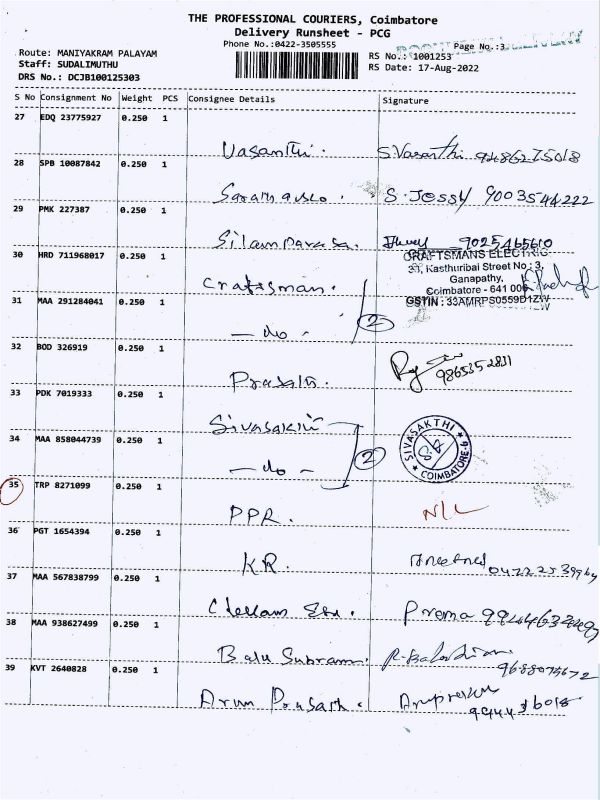 THE PROFESSIONAL COURIERS, Coimbatore
Delivery Runsheet - PCG
Phone No.:0422-3505555
Page No.:3
Route: MANIYAKRAM PALAYAM
RS No.: 1001253
Staff: SUDALIMUTHU
RS Date: 17-Aug-2022
DRS No.: DCJB100125303
S No Consignment No Weight PCS Consignee Details Signature
27 EDQ 23775927 0.250 1
Vasanthi. S.Vasanthi
28 SPB 10087842 0.250 1
S. JESSY 9003544222
29 PMK 227387 0.250 1
9025465610
30 HRD 711968017 0.250 1
CRAFTSMANS ELECTRIC
37, Kasthuribai Street No : 3,
Ganapathy,
Craftsman. Coimbatore - 641 006
31 MAA 291284041 0.250 1
GSTIN : 33AMRPS0559D1ZW
- do - 2
32 BOD 326919 0.250 1
Prasath. 9865352831
33 PDK 7019333 0.250 1
Sivasakthi SIVASAKTHI
34 MAA 858044739 0.250 1
- do - 2 COIMBATORE-6
35 TRP 8271099 0.250 1
PPR. N/L
36 PGT 1654394 0.250 1
KR.
37 MAA 567838799 0.250 1
Prema
38 MAA 938627499 0.250 1
Balu Subram.
39 KVT 2640828 0.250 1
Arun Prasath.